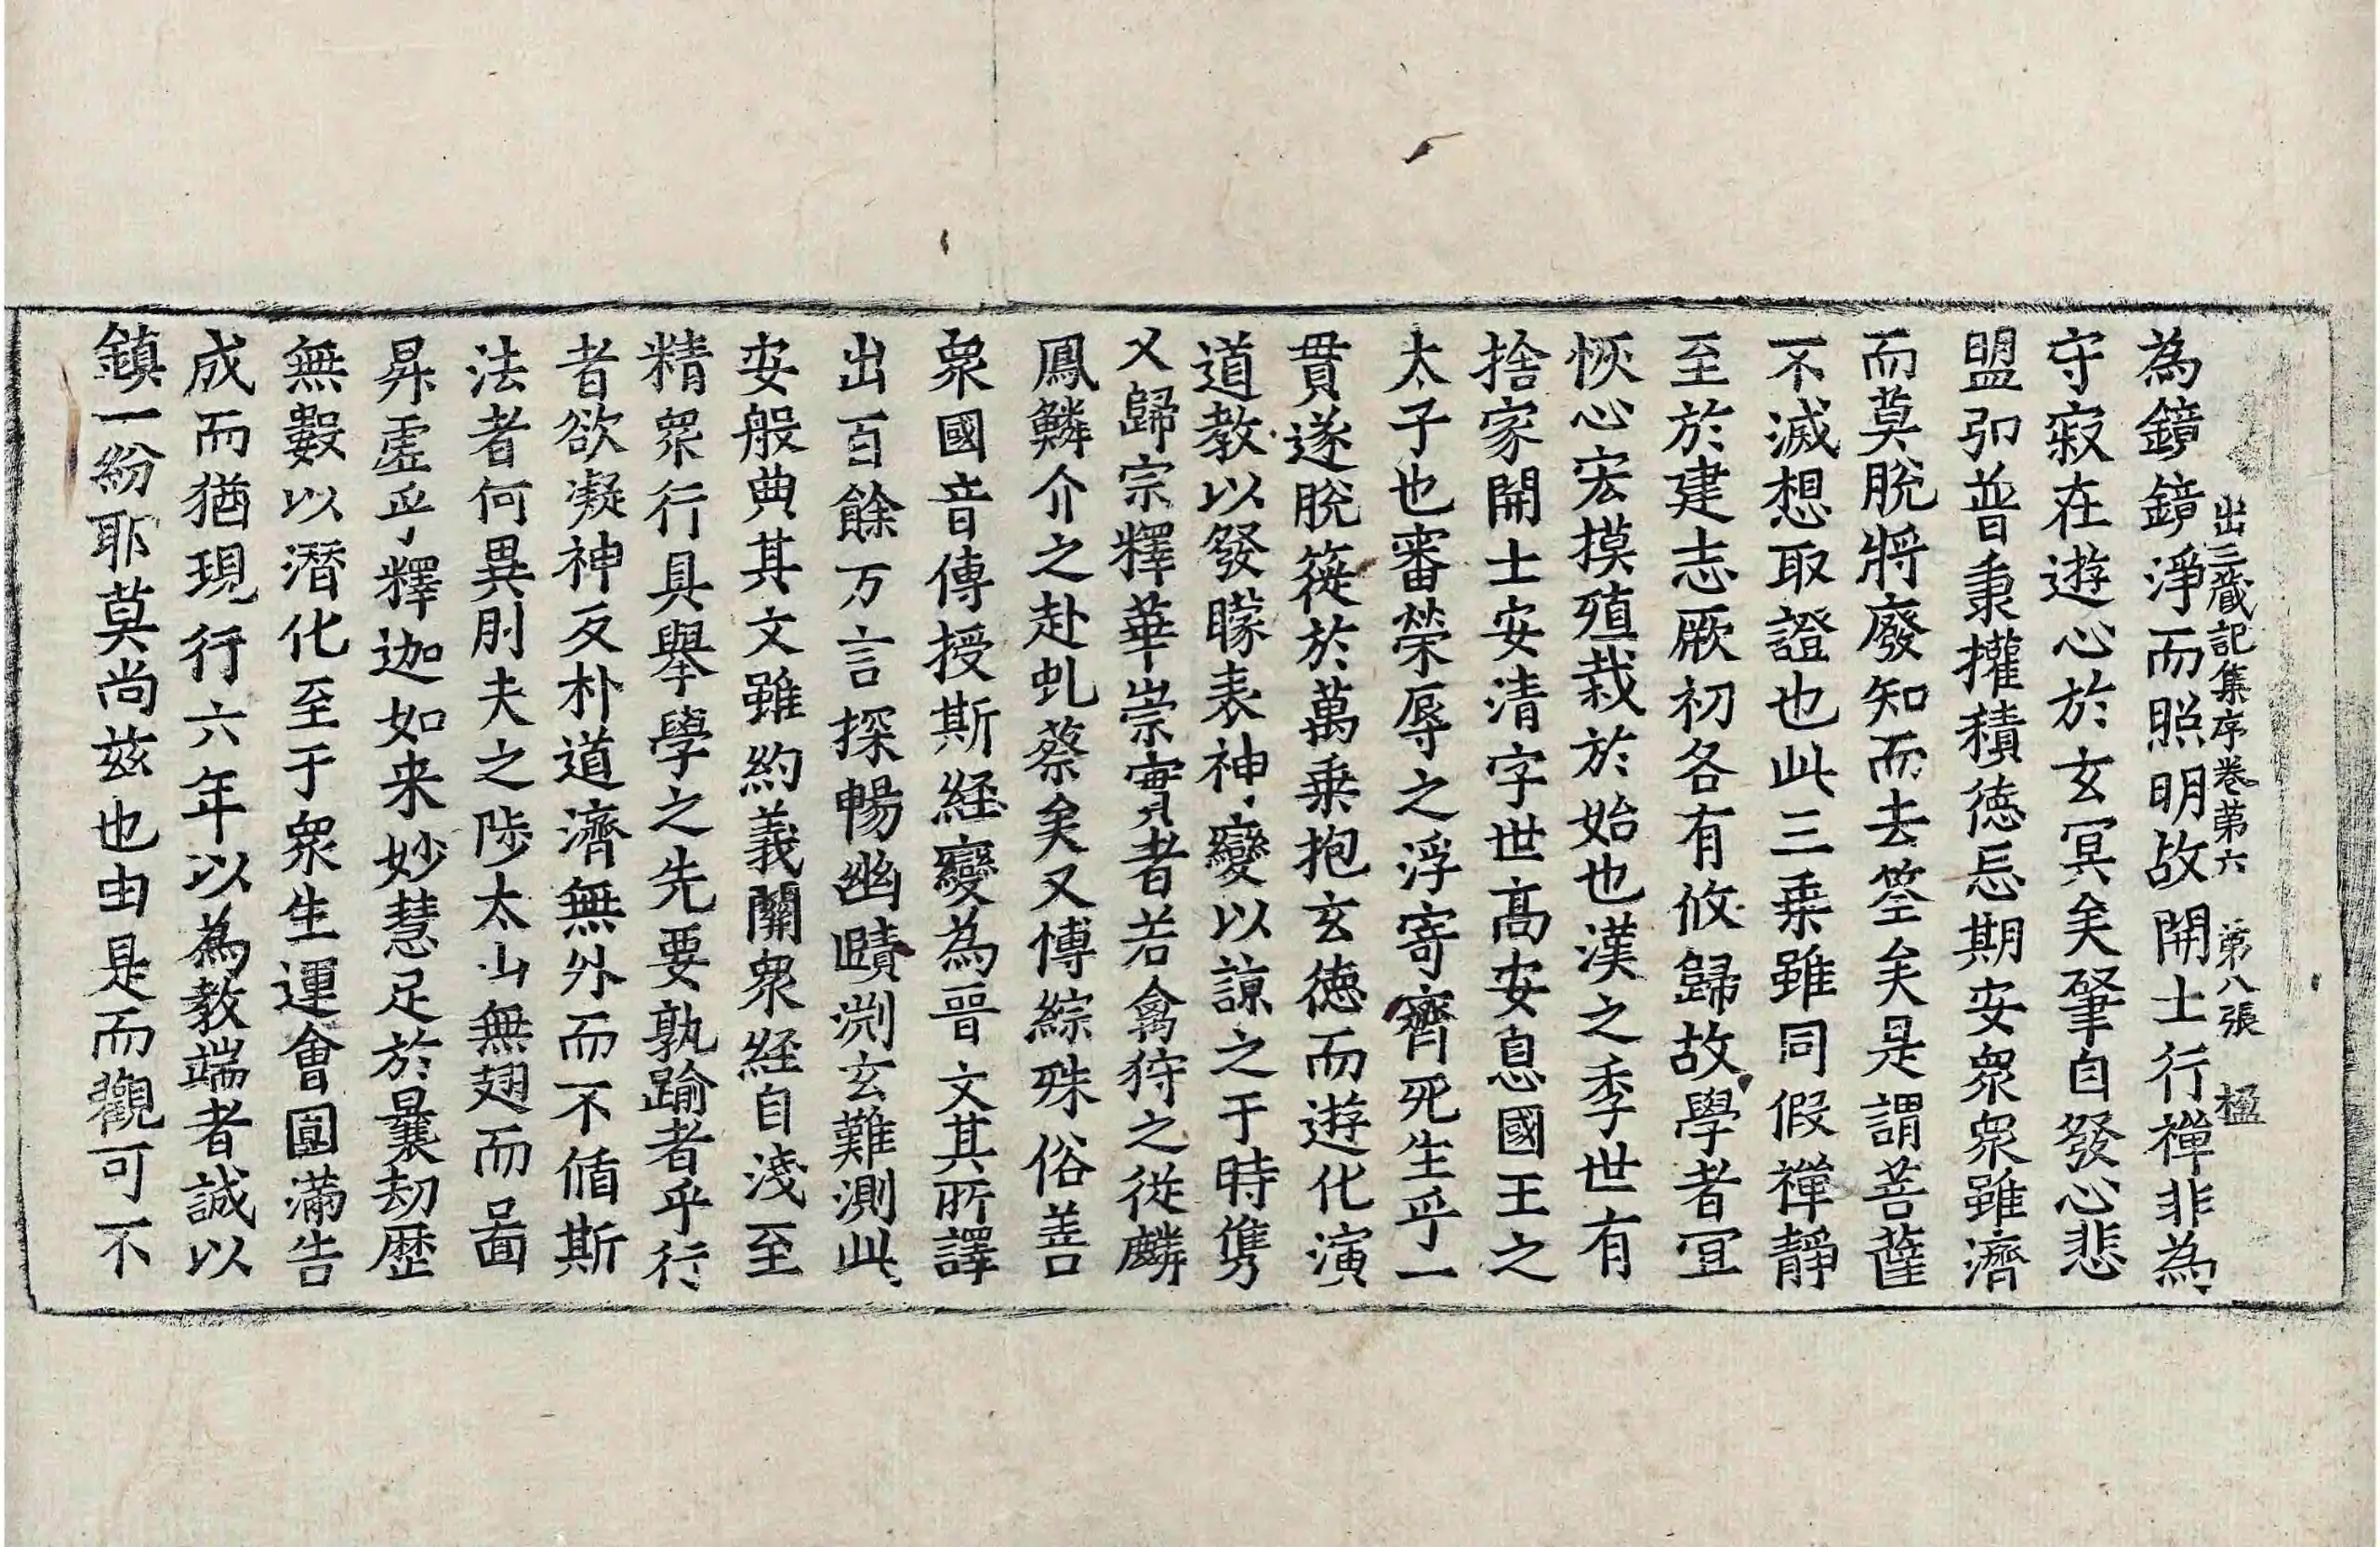 出三藏記集序卷第六 第八張 楹
為鏡鏡淨而照明故開士行禪非為
守寂在遊心於玄冥矣肇自發心悲
盟弘普秉權積德忘期安衆衆雖濟
而莫脫將廢知而去筌矣是謂菩薩
不滅想取證也此三乗雖同假禪靜
至於建志厥初各有攸歸故學者宜
恢心宏摸殖栽於始也漢之季世有
捨家開士安清字世高安息國王之
太子也審榮辱之浮寄齊死生乎一
貫遂脫簁於萬乗抱玄德而遊化演
道教以發矇表神變以諒之于時雋
乂歸宗釋華崇實者若禽狩之從麟
鳳鱗介之赴虬蔡矣又博綜殊俗善
衆國音傳授斯經變為晉文其所譯
出百餘万言探暢幽賾渕玄難測此
安般典其文雖約義關衆經自淺至
精衆行具舉學之先要孰踰者乎行
者欲凝神反朴道濟無外而不循斯
法者何異刖夫之陟太山無翅而啚
昇虛乎釋迦如来妙慧足於曩劫歴
無數以潛化至于衆生運會圓滿告
成而猶現行六年以為教端者誠以
鎮一紛耶莫尚兹也由是而觀可不